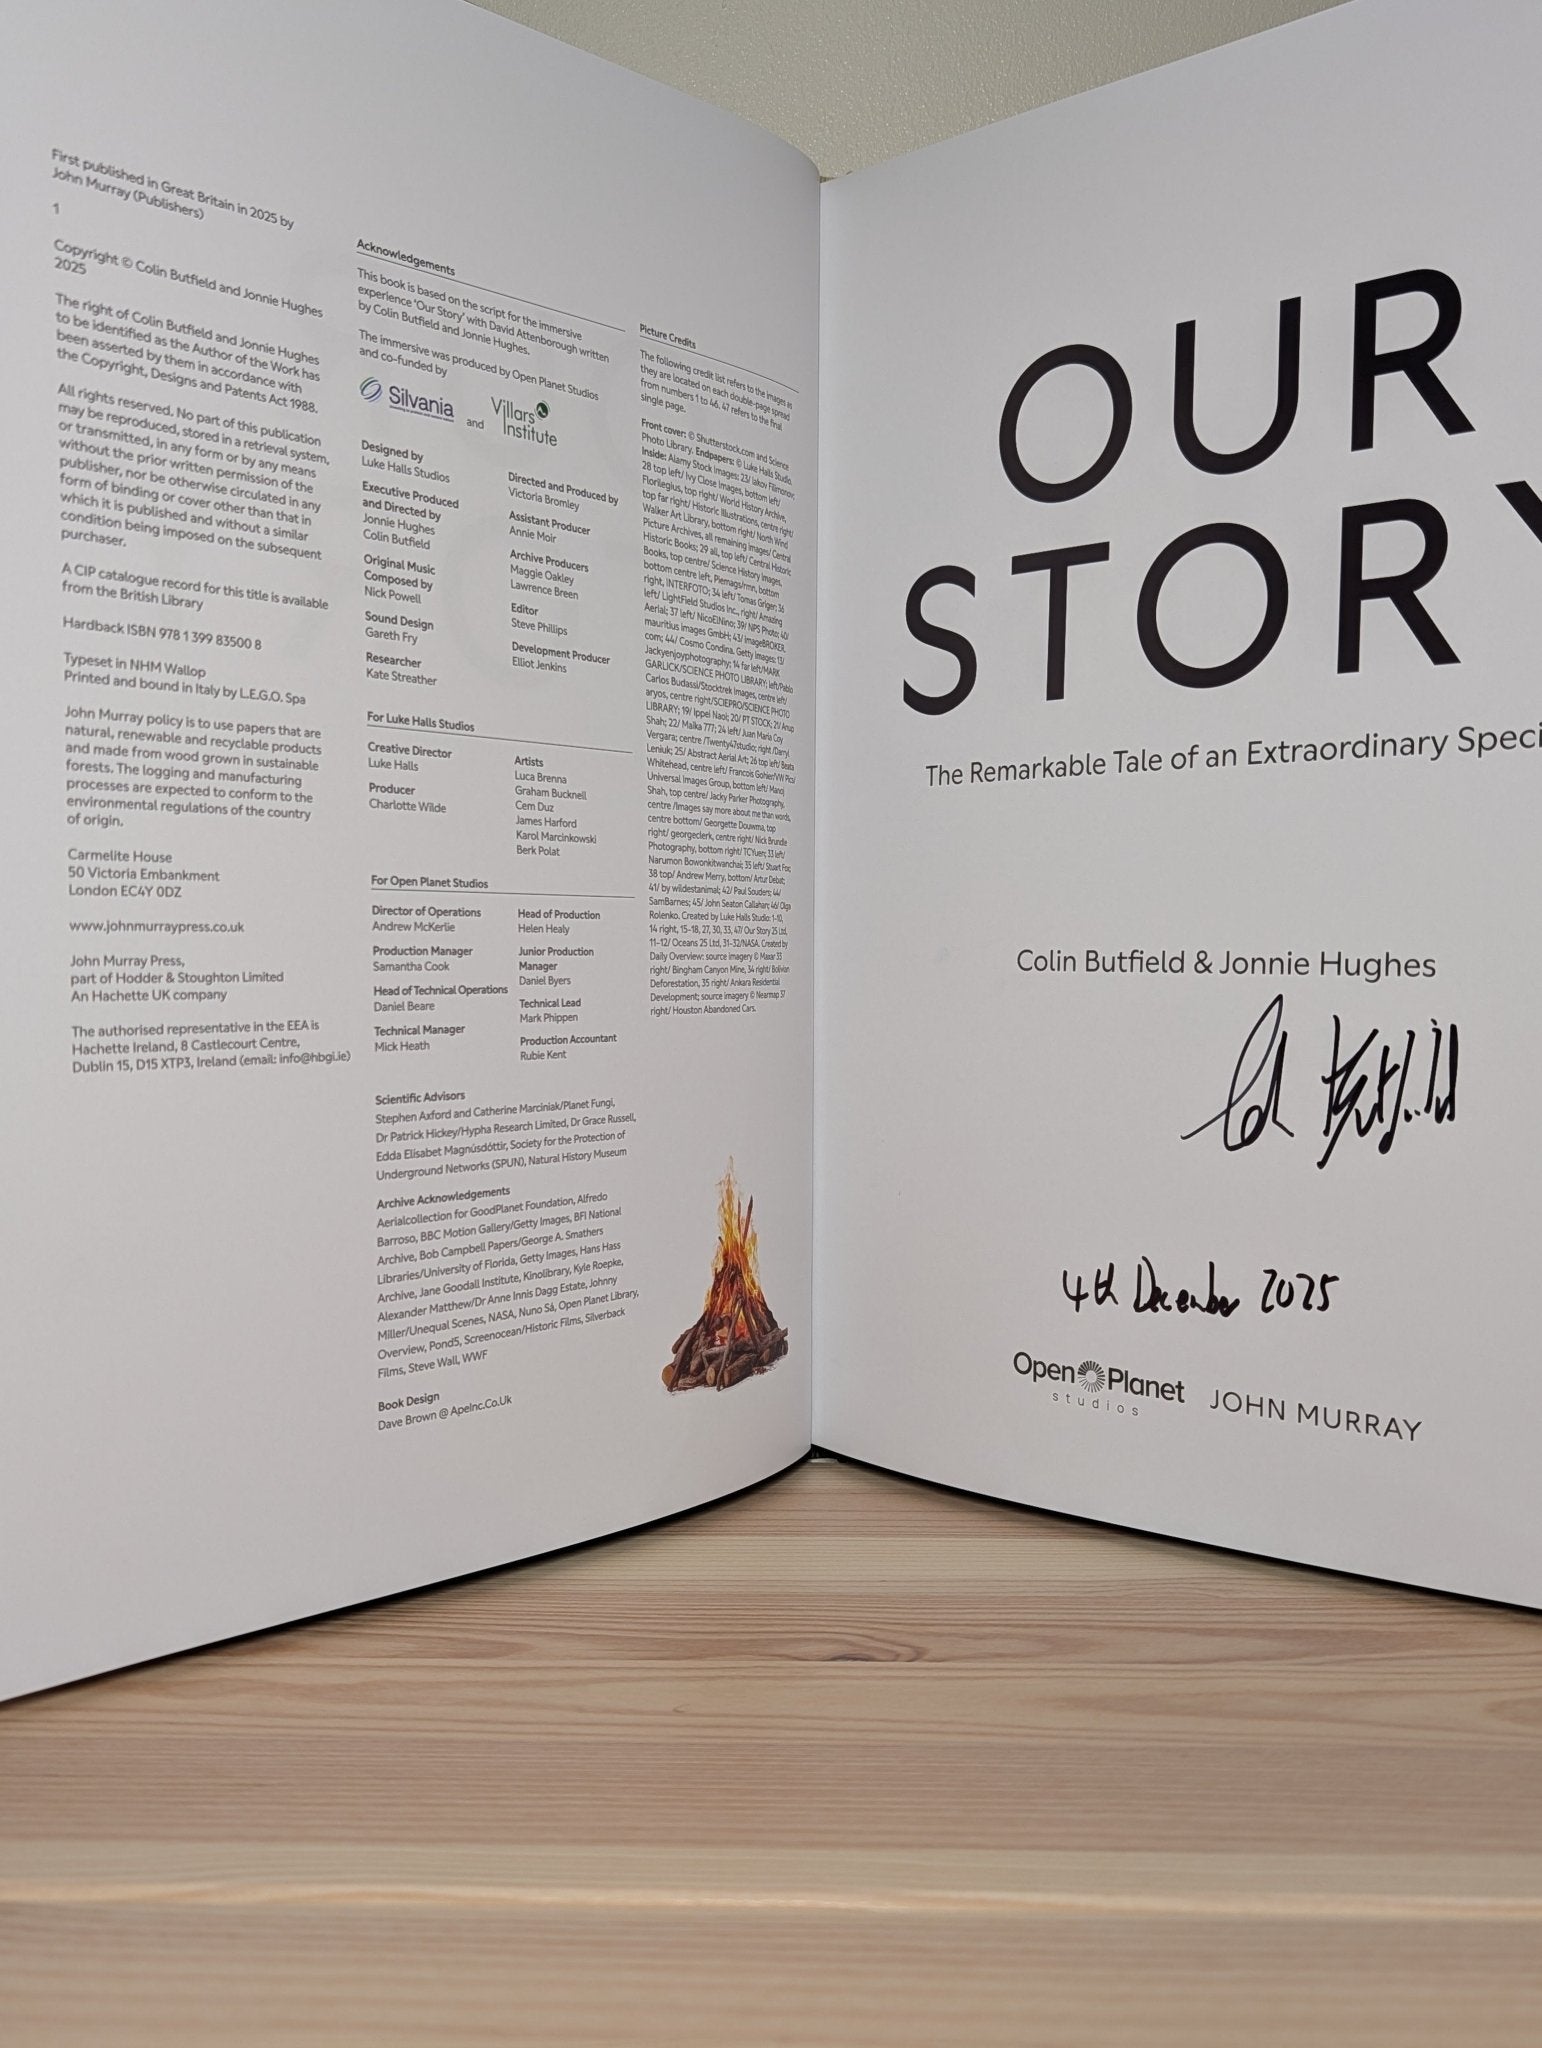 First published in Great Britain in 2025 by
John Murray (Publishers)
1
Copyright © Colin Butfield and Jonnie Hughes
2025
The right of Colin Butfield and Jonnie Hughes
to be identified as the Author of the Work has
been asserted by them in accordance with
the Copyright, Designs and Patents Act 1988.
All rights reserved. No part of this publication
may be reproduced, stored in a retrieval system,
or transmitted, in any form or by any means
without the prior written permission of the
publisher, nor be otherwise circulated in any
form of binding or cover other than that in
which it is published and without a similar
condition being imposed on the subsequent
purchaser.
A CIP catalogue record for this title is available
from the British Library
Hardback ISBN 978 1 399 83500 8
Typeset in NHM Wallop
Printed and bound in Italy by L.E.G.O. Spa
John Murray policy is to use papers that are
natural, renewable and recyclable products
and made from wood grown in sustainable
forests. The logging and manufacturing
processes are expected to conform to the
environmental regulations of the country
of origin.
Carmelite House
50 Victoria Embankment
London EC4Y 0DZ
www.johnmurraypress.co.uk
John Murray Press,
part of Hodder & Stoughton Limited
An Hachette UK company
The authorised representative in the EEA is
Hachette Ireland, 8 Castlecourt Centre,
Dublin 15, D15 XTP3, Ireland (email: info@hbgi.ie)
Acknowledgements
This book is based on the script for the immersive
experience 'Our Story' with David Attenborough written
by Colin Butfield and Jonnie Hughes.
The immersive was produced by Open Planet Studios
and co-funded by
Silvania
and
Villars
Institute
Designed by
Luke Halls Studios
Executive Produced
and Directed by
Jonnie Hughes
Colin Butfield
Original Music
Composed by
Nick Powell
Sound Design
Gareth Fry
Researcher
Kate Streather
Directed and Produced by
Victoria Bromley
Assistant Producer
Annie Moir
Archive Producers
Maggie Oakley
Lawrence Breen
Editor
Steve Phillips
Development Producer
Elliot Jenkins
For Luke Halls Studios
Creative Director
Luke Halls
Producer
Charlotte Wilde
Artists
Luca Brenna
Graham Bucknell
Cem Duz
James Harford
Karol Marcinkowski
Berk Polat
For Open Planet Studios
Director of Operations
Andrew McKerlie
Production Manager
Samantha Cook
Head of Technical Operations
Daniel Beare
Technical Manager
Mick Heath
Head of Production
Helen Healy
Junior Production
Manager
Daniel Byers
Technical Lead
Mark Phippen
Production Accountant
Rubie Kent
Scientific Advisors
Stephen Axford and Catherine Marciniak/Planet Fungi,
Dr Patrick Hickey/Hypha Research Limited, Dr Grace Russell,
Edda Elísabet Magnúsdóttir, Society for the Protection of
Underground Networks (SPUN), Natural History Museum
Archive Acknowledgements
Aerialcollection for GoodPlanet Foundation, Alfredo
Barroso, BBC Motion Gallery/Getty Images, BFI National
Archive, Bob Campbell Papers/George A. Smathers
Libraries/University of Florida, Getty Images, Hans Hass
Archive, Jane Goodall Institute, Kinolibrary, Kyle Roepke,
Alexander Matthew/Dr Anne Innis Dagg Estate, Johnny
Miller/Unequal Scenes, NASA, Nuno Sá, Open Planet Library,
Overview, Pond5, Screenocean/Historic Films, Silverback
Films, Steve Wall, WWF
Book Design
Dave Brown @ ApeInc.Co.Uk
Picture Credits
The following credit list refers to the images as
they are located on each double-page spread
from numbers 1 to 46. 47 refers to the final
single page.
Front cover: © Shutterstock.com and Science
Photo Library. Endpapers: © Luke Halls Studio.
Inside: Alamy Stock Images: 23/ Iakov Filimonov;
28 top left/ Ivy Close Images, bottom left/
Florilegius, top right/ World History Archive,
top far right/ Historic Illustrations, centre right/
Walker Art Library, bottom right/ North Wind
Picture Archives, all remaining images/ Central
Historic Books; 29 all, top left/ Central Historic
Books, top centre/ Science History Images,
bottom centre left, Piemags/rmn, bottom
right, INTERFOTO; 34 left/ Tomas Griger; 36
left/ LightField Studios Inc., right/ Amazing
Aerial; 37 left/ NicoElNino; 39/ NPS Photo; 40/
mauritius images GmbH; 43/ imageBROKER.
com; 44/ Cosmo Condina. Getty Images: 13/
Jackyenjoyphotography; 14 far left/MARK
GARLICK/SCIENCE PHOTO LIBRARY; left/Pablo
Carlos Budassi/Stocktrek Images, centre left/
aryos, centre right/SCIEPRO/SCIENCE PHOTO
LIBRARY; 19/ Ippei Naoi; 20/ PT STOCK; 21/ Anup
Shah; 22/ Malka 777; 24 left/ Juan Maria Coy
Vergara; centre /Twenty47studio; right /Darryl
Leniuk; 25/ Abstract Aerial Art; 26 top left/ Beata
Whitehead, centre left/ Francois Gohier/VW Pics/
Universal Images Group, bottom left/ Manoj
Shah, top centre/ Jacky Parker Photography,
centre /Images say more about me than words,
centre bottom/ Georgette Douwma, top
right/ georgeclerk, centre right/ Nick Brundle
Photography, bottom right/ TCYuen; 33 left/
Narumon Bowonkitwanchai; 35 left/ Stuart Fox;
38 top/ Andrew Merry, bottom/ Artur Debat;
41/ by wildestanimal; 42/ Paul Souders; 44/
SamBarnes; 45/ John Seaton Callahan; 46/ Olga
Rolenko. Created by Luke Halls Studio: 1–10,
14 right, 15–18, 27, 30, 33, 47/ Our Story 25 Ltd,
11–12/ Oceans 25 Ltd, 31–32/NASA. Created by
Daily Overview: source imagery © Maxar 33
right/ Bingham Canyon Mine, 34 right/ Bolivian
Deforestation, 35 right/ Ankara Residential
Development; source imagery © Nearmap 37
right/ Houston Abandoned Cars.
OUR
STORY
The Remarkable Tale of an Extraordinary Speci
Colin Butfield & Jonnie Hughes
Col Butfield
4th December 2025
Open Planet
studios
JOHN MURRAY